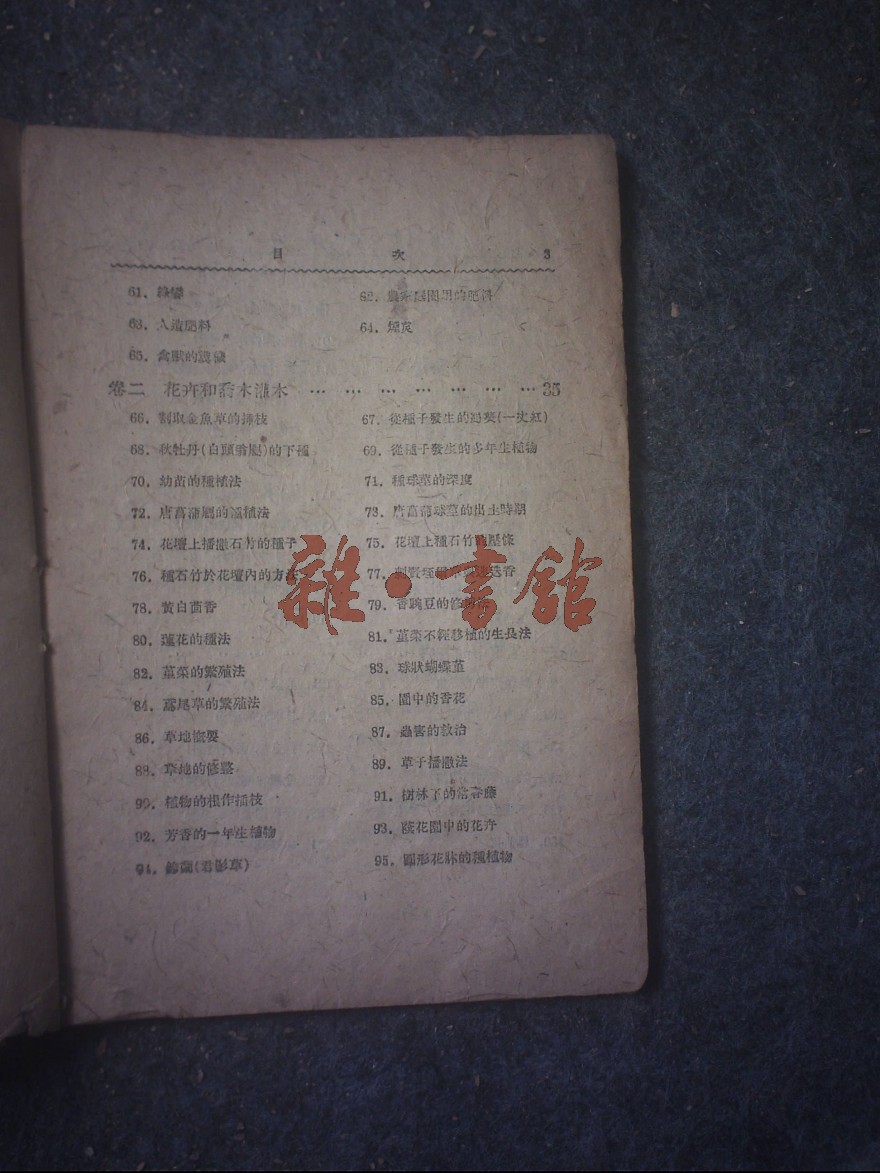 目 次 3
61. 62. 農家園圃用的肥料
63. 人造肥料 64. 煤炱
65. 禽獸的遺穢
卷二 花卉和喬木灌木 … … … … … … …35
66. 割取金魚草的插枝 67. 從種子發生的蜀葵(一丈紅)
68. 秋牡丹(白頭翁屬)的下種 69. 從種子發生的多年生植物
70. 幼苗的種植法 71. 種球莖的深度
72. 唐菖蒲屬的種植法 73. 唐菖蒲球莖的出土時期
74. 花壇上播撒石竹的種子 75. 花壇上種石竹的壓條
76. 種石竹於花壇內的方法 77.
78. 黃白茴香 79. 香豌豆的修
80. 蓮花的種法 81. 菫菜不經移植的生長法
82. 菫菜的繁殖法 83. 球狀蝴蝶菫
84. 鳶尾草的繁殖法 85. 園中的香花
86. 草地 87. 蟲害的救治
88. 草地的修整 89. 草子播撒法
90. 植物的根作插枝 91. 樹林下的常春藤
92. 芳香的一年生植物 93. 園中的花卉
94. 鈴蘭(君影草) 95. 圓形花牀的種植物
雜·書館